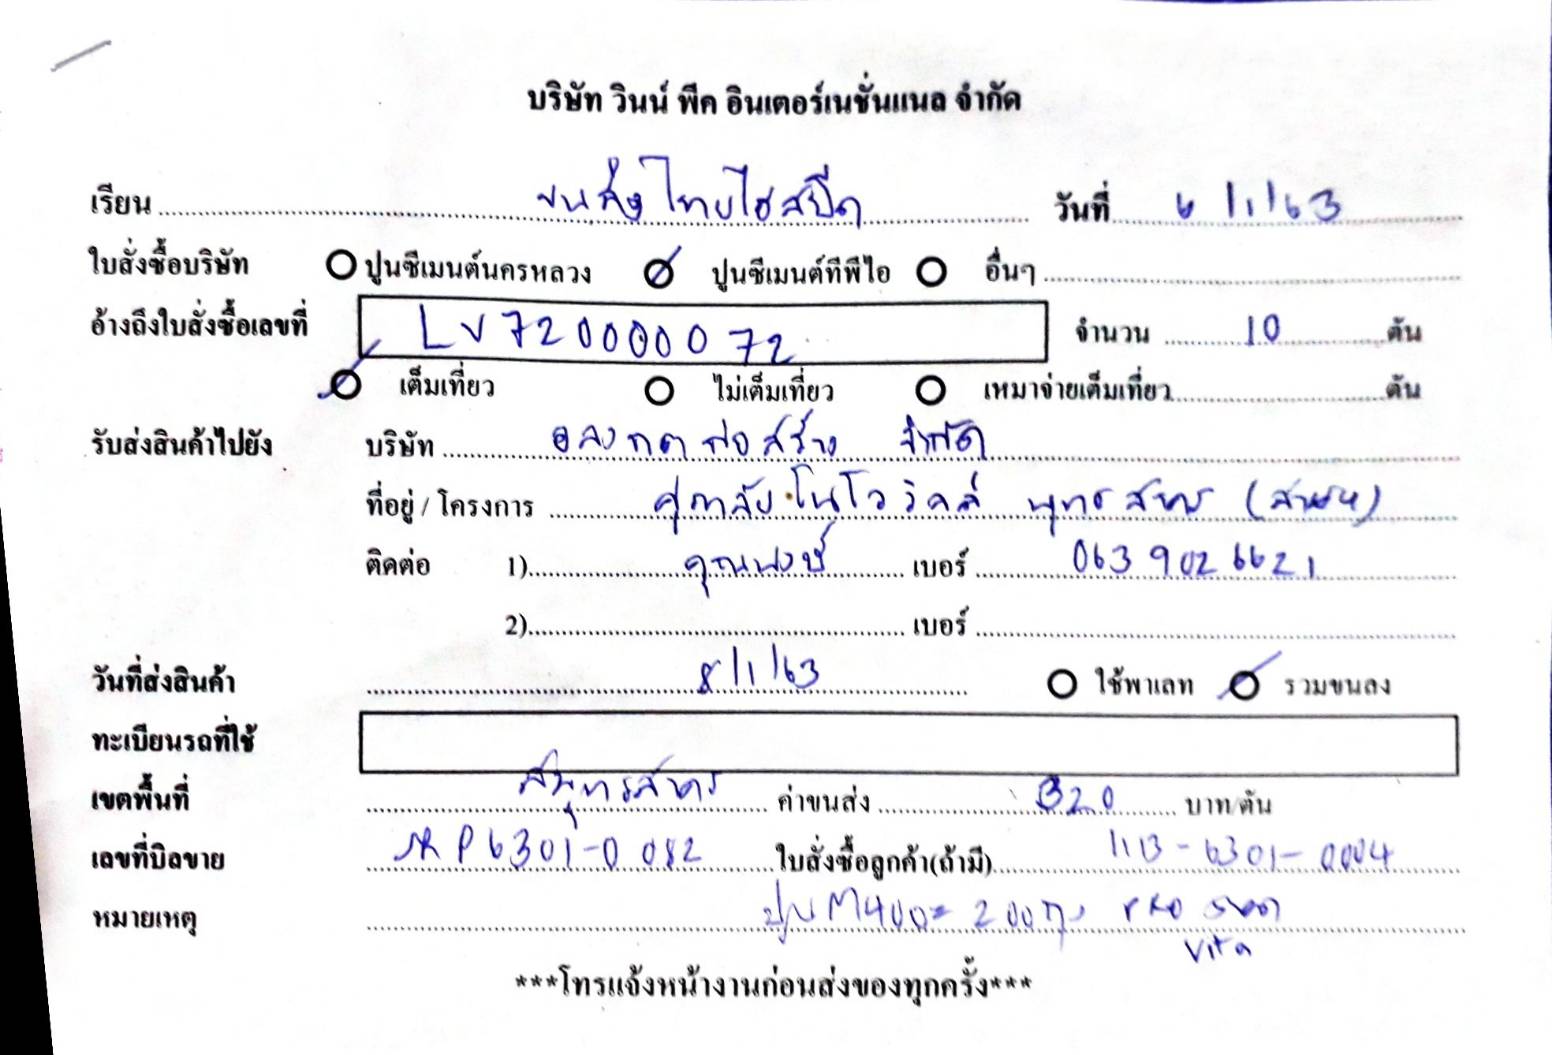 บริษัท วินน์ พีค อินเตอร์เนชั่นแนล จำกัด
เรียน ขนส่งไทยไฮสปีด วันที่ 6/1/63
ใบสั่งซื้อบริษัท ปูนซีเมนต์นครหลวง ปูนซีเมนต์ทีพีไอ อื่นๆ
อ้างถึงใบสั่งซื้อเลขที่ LV720000072 จำนวน 10 ตัน
เต็มเที่ยว ไม่เต็มเที่ยว เหมาจ่ายเต็มเที่ยว ตัน
รับส่งสินค้าไปยัง บริษัท อลงกตก่อสร้าง จำกัด
ที่อยู่ / โครงการ ศุภาลัย โนโววิลล์ พุทธสาคร
ติดต่อ 1) คุณพงษ์ เบอร์ 063 902 6621
2) เบอร์
วันที่ส่งสินค้า 8/1/63 ใช้พาเลท รวมขนลง
ทะเบียนรถที่ใช้
เขตพื้นที่ สมุทรสาคร ค่าขนส่ง 320 บาท/ตัน
เลขที่บิลขาย P6301-0082 ใบสั่งซื้อลูกค้า(ถ้ามี) -6301-0004
หมายเหตุ ปูน M400= 200
***โทรแจ้งหน้างานก่อนส่งของทุกครั้ง***